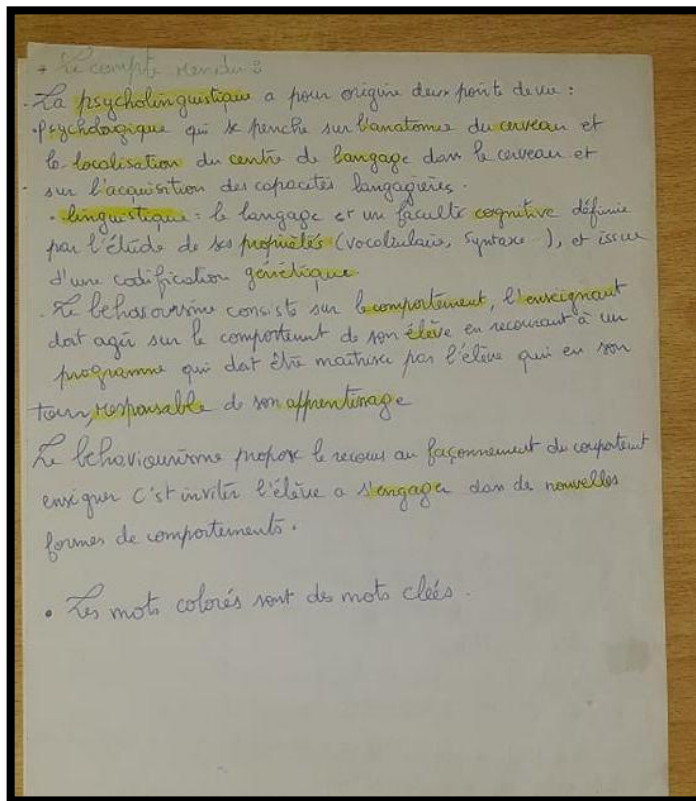 + Le compte rendu :
. La psycholinguistique a pour origine deux points de vue :
. Psychologique qui se penche sur l'anatomie du cerveau et
la localisation du centre de langage dans le cerveau et
sur l'acquisition des capacités langagières.
. linguistique : le langage est un faculté cognitive définie
par l'étude de ses propriétés (vocabulaire, syntaxe..), et issue
d'une codification génétique.
. Le behavourisme consiste sur le comportement, l'enseignant
doit agir sur le comportement de son élève en recourant à un
programme qui doit être maitrisé par l'élève qui en son
tour, responsable de son apprentissage
Le behaviourisme propose le recours au façonnement du comportement
enseigner C'est inviter l'élève a s'engager dans de nouvelles
formes de comportements.
• Les mots colorés sont des mots cleés.